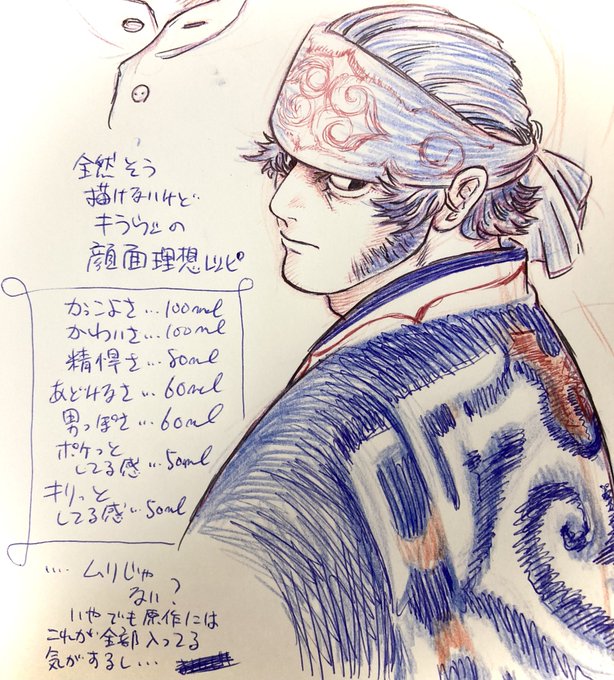 全然そう
描けないけど
キラウシの
顔面理想レシピ
かっこよさ…100ml
かわいさ…100ml
精悍さ…80ml
あどけなさ…60ml
男っぽさ…60ml
ポケっと
してる感…50ml
キリっと
してる感…50ml
…ムリじゃ
ない?
いやでも原作には
これが全部入ってる
気がするし…